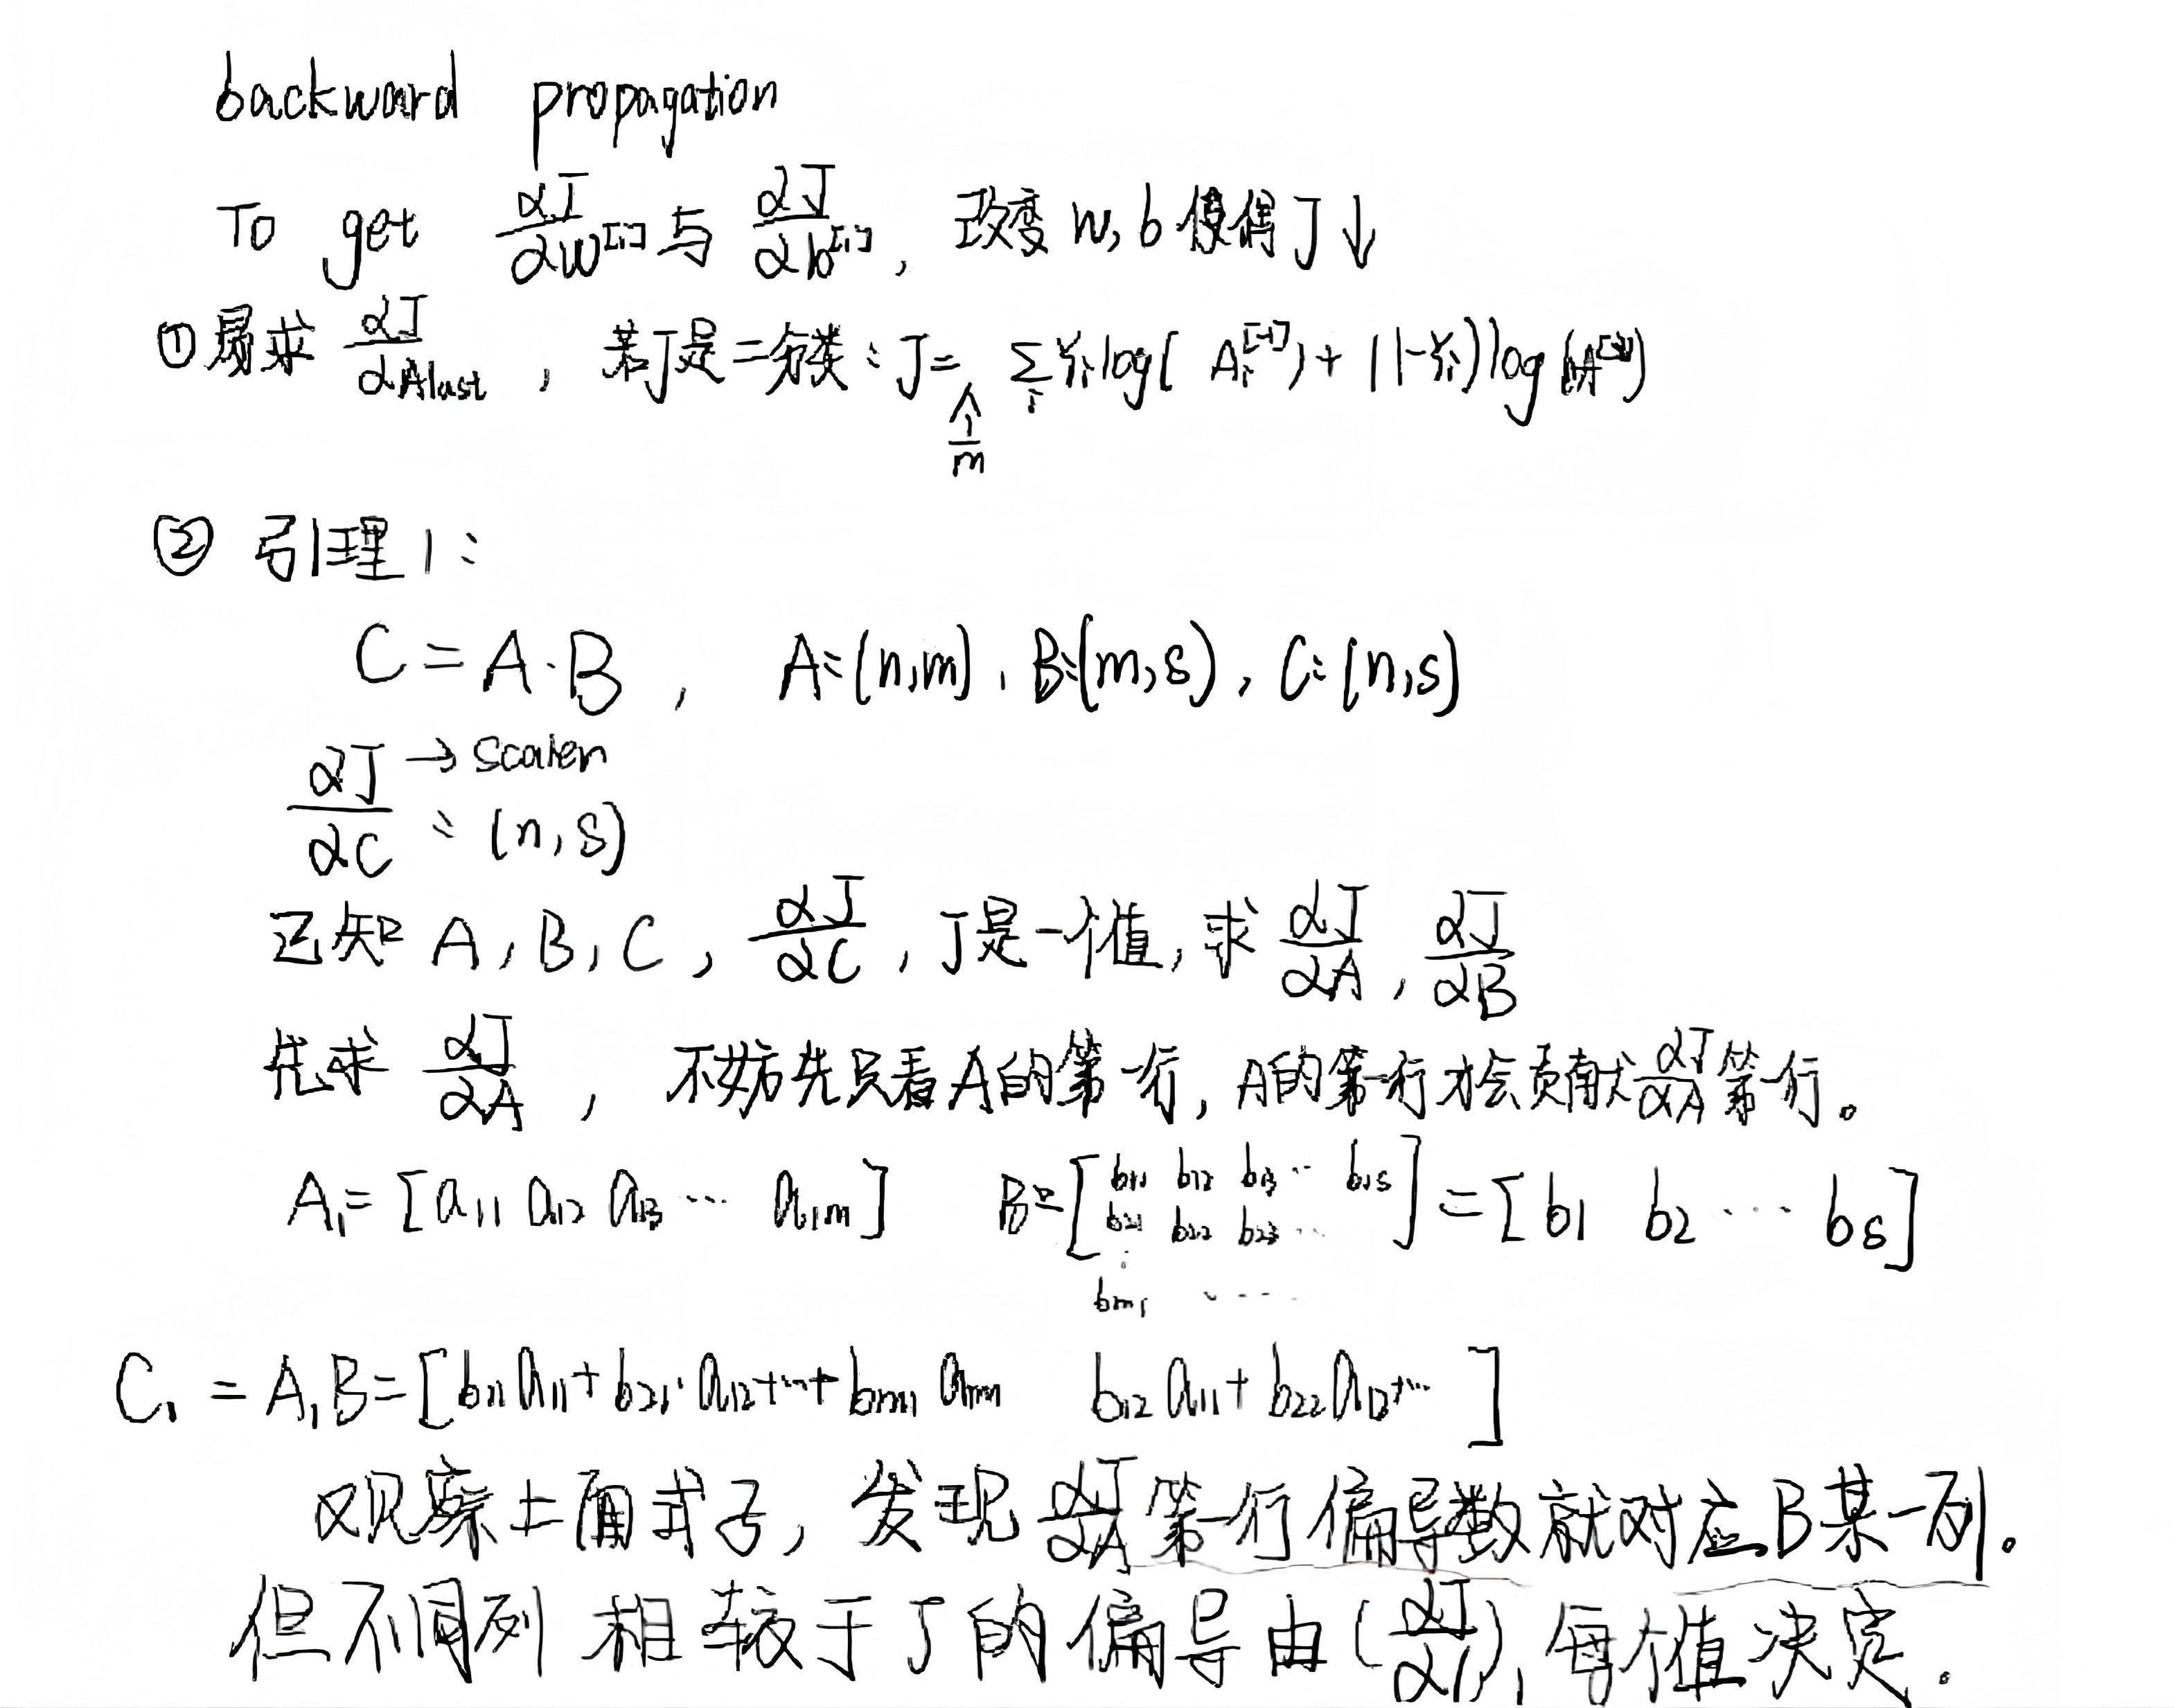 backward propagation
To get αJ/αW[i] 与 αJ/αb[i], 改变 w,b 使得 J↓
①易求 αJ/αAlast, 若J是二分类: J= 1/m Σi Yi log(Ai[-1]) + (1-Yi) log(1-A[-1])
② 引理1:
C=A·B, A:(n,m), B:(m,s), C:(n,s)
αJ/αC → scaler : (n,s)
已知 A,B,C, αJ/αC, J是一个值, 求 αJ/αA, αJ/αB
先求 αJ/αA, 不妨先只看A的第一行, A的第一行才会贡献 αJ/αA 第一行。
A1= [a11 a12 a13 ··· a1m] B= [b11 b12 b13 ··· b1s
b21 b22 b23 ···
⋮
bm1 ····] = [b1 b2 ··· bs]
C1 = A1B= [b11a11+b21·a12+···+bm1 a1m b12a11+b22a12+··· ]
观察上面式子, 发现 αJ/αA 第一行偏导数就对应B某一列.
但不同列 相较于J的偏导由(αJ/αC)1 每个值决定.